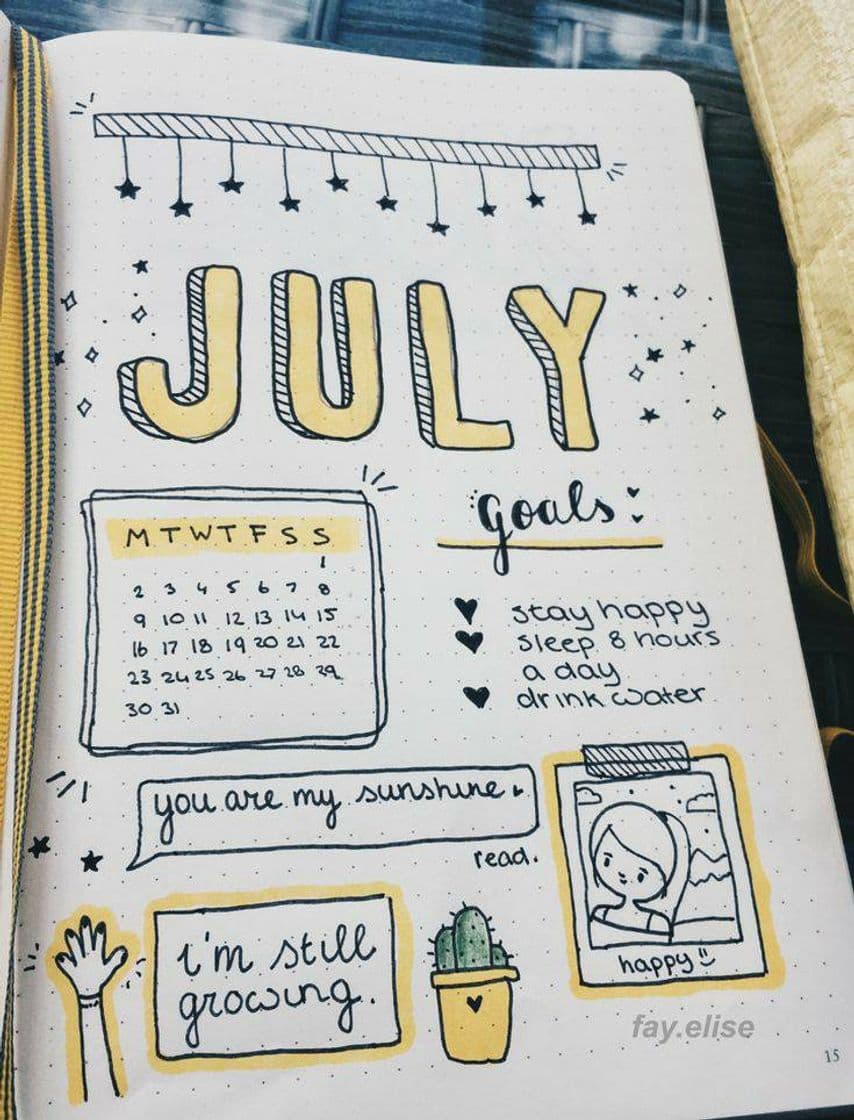 JULY
goals:
M T W T F S S
1
2 3 4 5 6 7 8
9 10 11 12 13 14 15
16 17 18 19 20 21 22
23 24 25 26 27 28 29
30 31
stay happy
sleep 8 hours
a day
drink water
you are my sunshine
read.
i'm still
growing.
happy
fay.elise
15